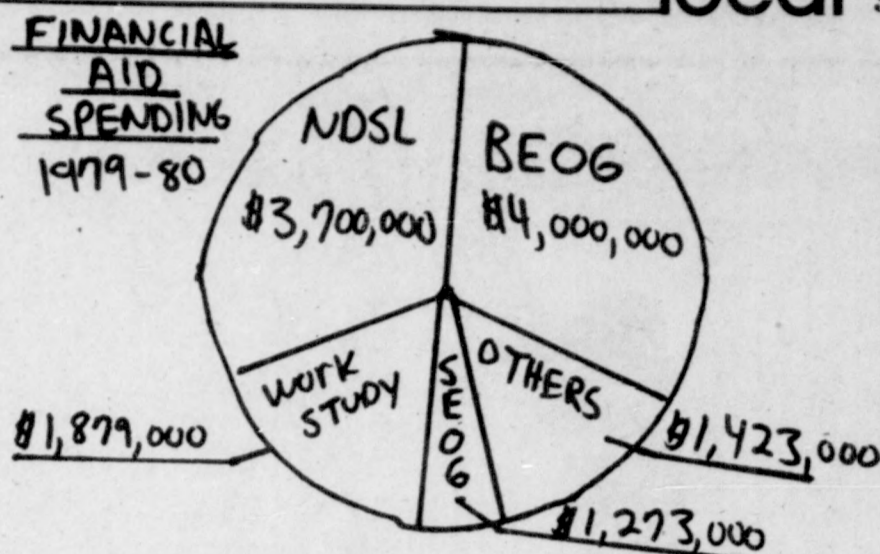 FINANCIAL
AID
SPENDING
1979-80
NDSL
$3,700,000
BEOG
$4,000,000
WORK
STUDY
$1,879,000
SEOG
$1,273,000
OTHERS
$1,423,000